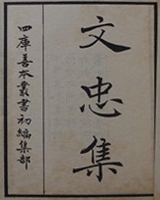 文忠集
四庫善本叢書初編集部